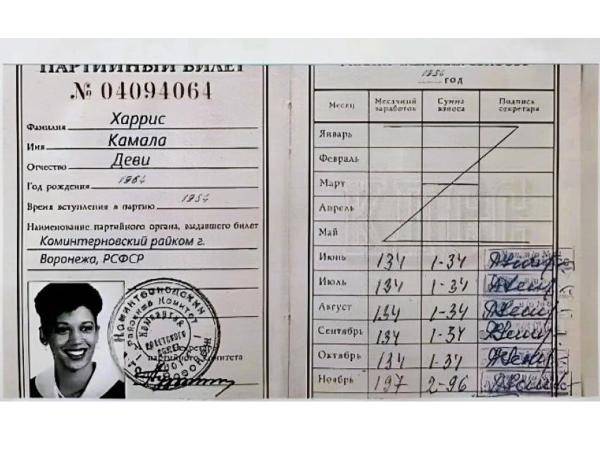 ПАРТИЙНЫЙ БИЛЕТ
№ 04094064
Фамилия Харрис
Имя Камала
Отчество Деви
Год рождения 1964
Время вступления в партию 1954
Наименование партийного органа, выдавшего билет
Коминтерновский райком г.
Воронежа, РСФСР
1956
ГОД
Месяц Месячный заработок Сумма взноса Подпись секретаря
Январь
Февраль
Март
Апрель
Май
Июнь 134 1-34
Июль 134 1-34
Август 134 1-34
Сентябрь 134 1-34
Октябрь 134 1-34
Ноябрь 197 2-96